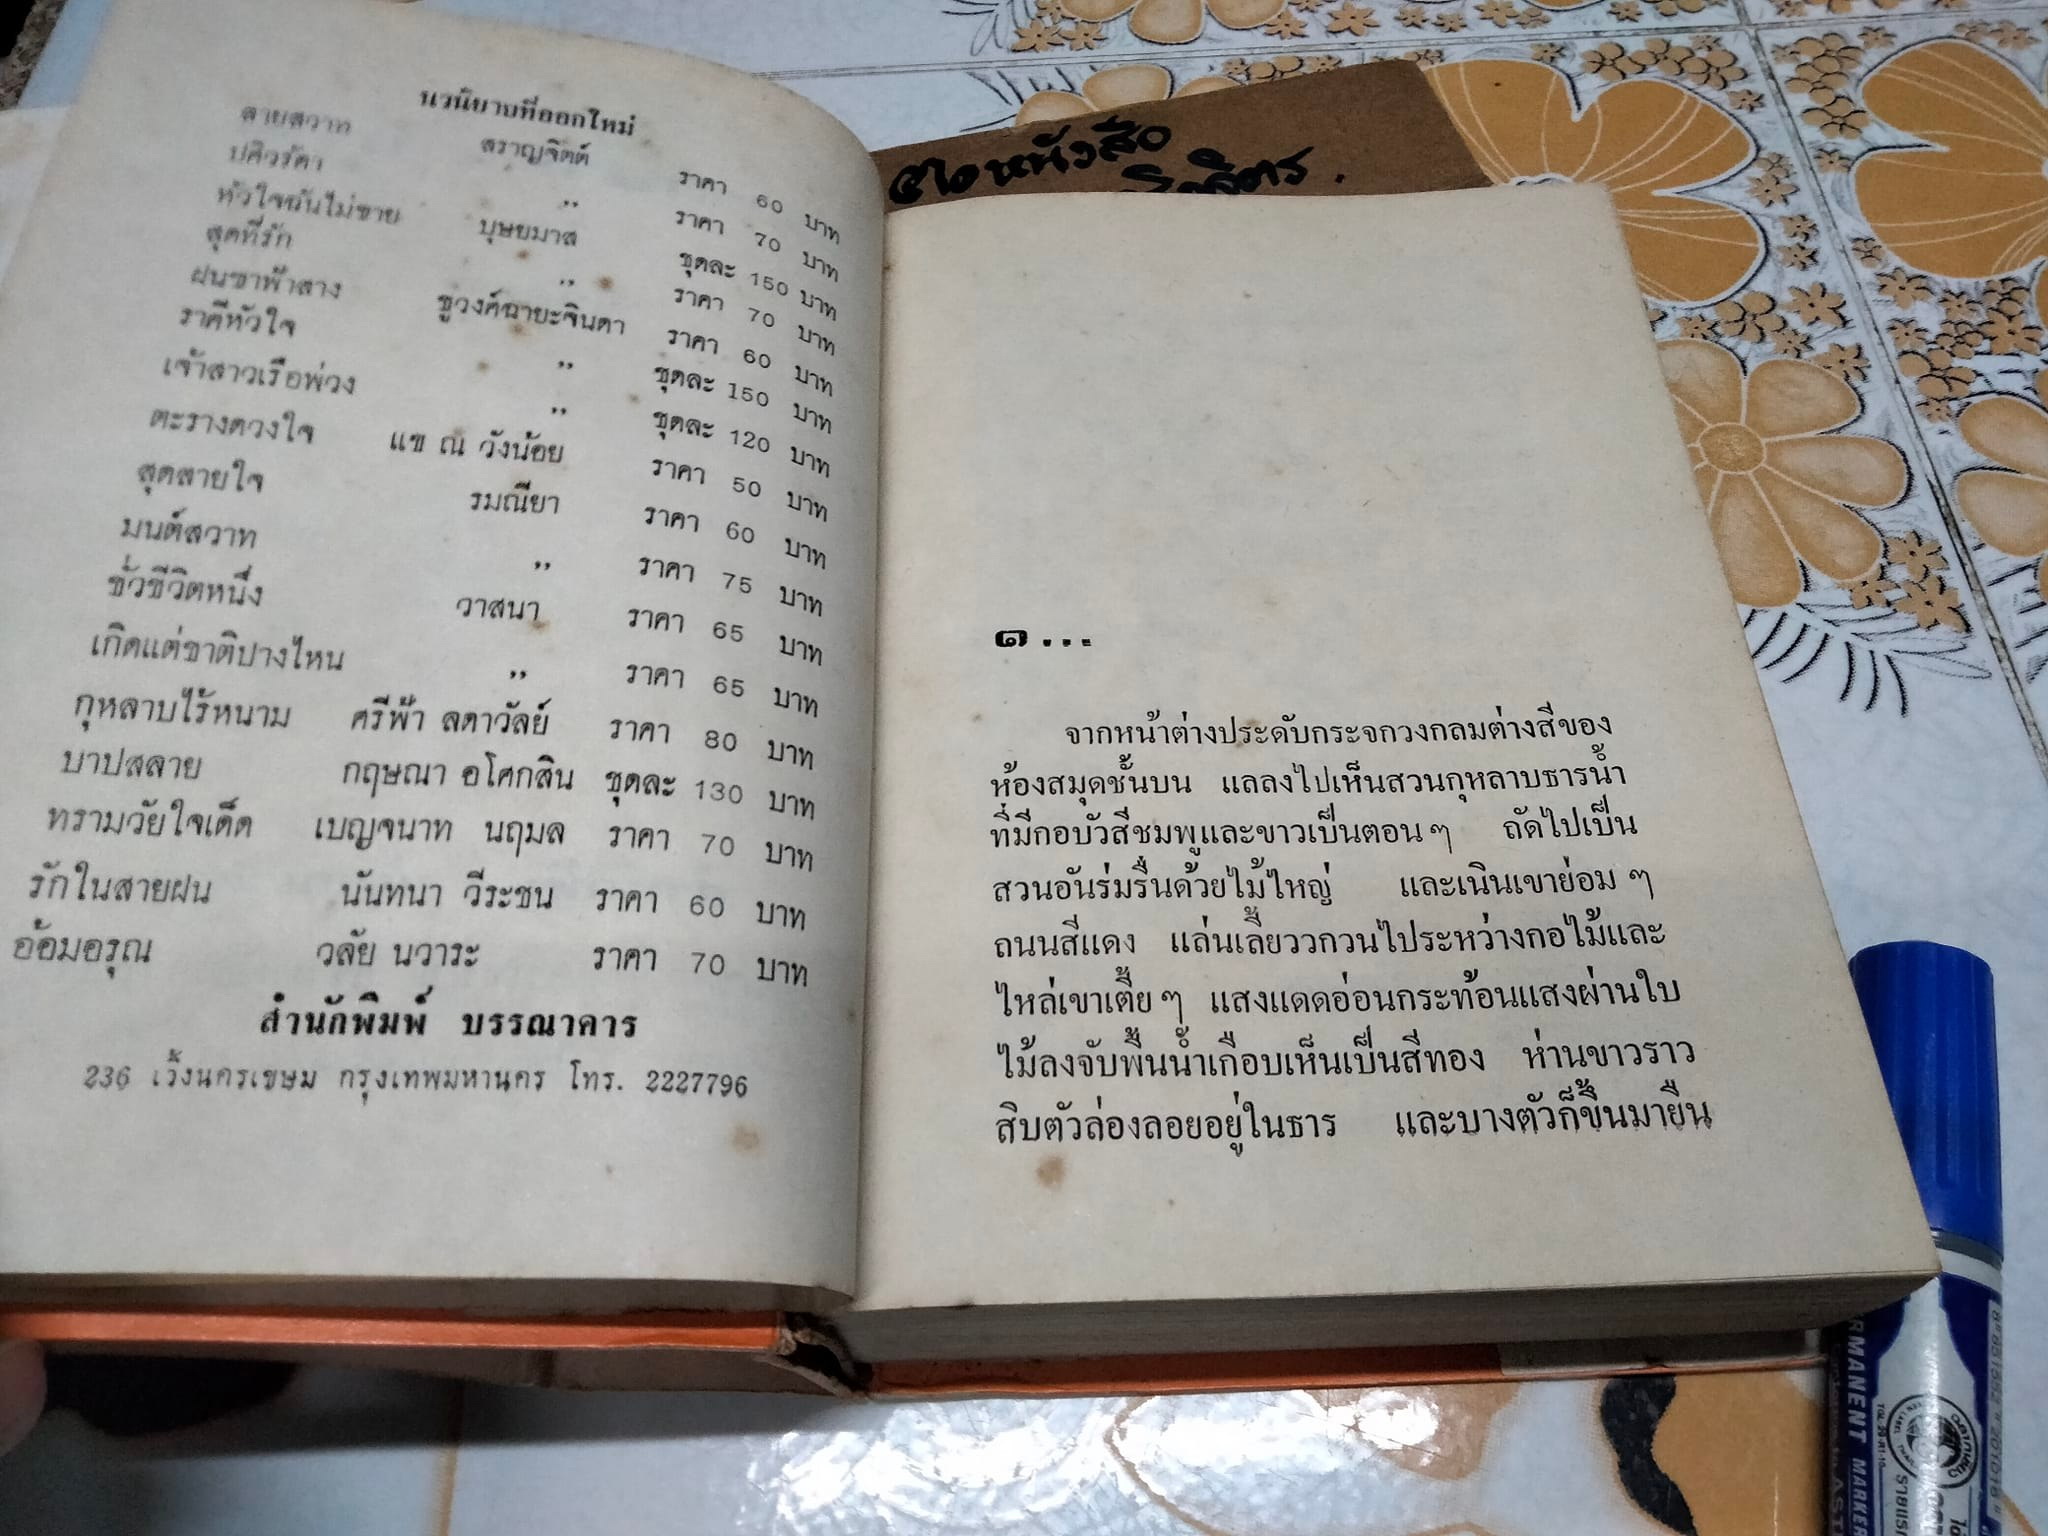 นวนิยายที่ออกใหม่
สายสวาท สราญจิตต์ ราคา 60 บาท
ปศิวรัดา ,, ราคา 70 บาท
หัวใจฉันไม่ขาย บุษยมาส ชุดละ 150 บาท
สุดที่รัก ,, ราคา 70 บาท
ฝนซาฟ้าสาง ชูวงศ์ฉายะจินดา ราคา 60 บาท
ราคีหัวใจ ,, ชุดละ 150 บาท
เจ้าสาวเรือพ่วง ,, ชุดละ 120 บาท
ตะรางดวงใจ แข ณ วังน้อย ราคา 50 บาท
สุดสายใจ รมณียา ราคา 60 บาท
มนต์สวาท ,, ราคา 75 บาท
ชั่วชีวิตหนึ่ง วาสนา ราคา 65 บาท
เกิดแต่ชาติปางไหน ,, ราคา 65 บาท
กุหลาบไร้หนาม ศรีฟ้า ลดาวัลย์ ราคา 80 บาท
บาปสลาย กฤษณา อโศกสิน ชุดละ 130 บาท
ทรามวัยใจเด็ด เบญจนาท นฤมล ราคา 70 บาท
รักในสายฝน นันทนา วีระชน ราคา 60 บาท
อ้อมอรุณ วลัย นวาระ ราคา 70 บาท
สำนักพิมพ์ บรรณาคาร
236 เวิ้งนครเขษม กรุงเทพมหานคร โทร. 2227796
หนังสือ
๑...
จากหน้าต่างประดับกระจกวงกลมต่างสีของ
ห้องสมุดชั้นบน แลลงไปเห็นสวนกุหลาบธารน้ำ
ที่มีกอบัวสีชมพูและขาวเป็นตอนๆ ถัดไปเป็น
สวนอันร่มรื่นด้วยไม้ใหญ่ และเนินเขาย่อมๆ
ถนนสีแดง แล่นเลี้ยววกวนไประหว่างกอไม้และ
ไหล่เขาเตี้ยๆ แสงแดดอ่อนกระท้อนแสงผ่านใบ
ไม้ลงจับพื้นน้ำเกือบเห็นเป็นสีทอง ห่านขาวราว
สิบตัวล่องลอยอยู่ในธาร และบางตัวก็ขึ้นมายืน
RMANENT MARKER